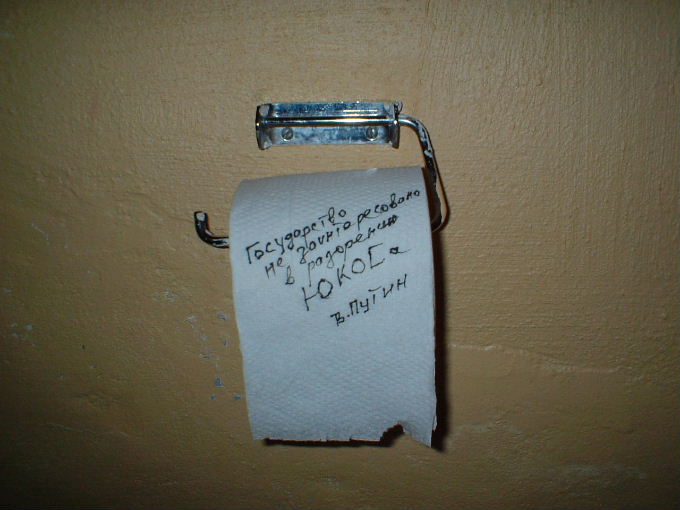 Государство
не заинтересовано
в разорении
ЮКОСа
В. Путин